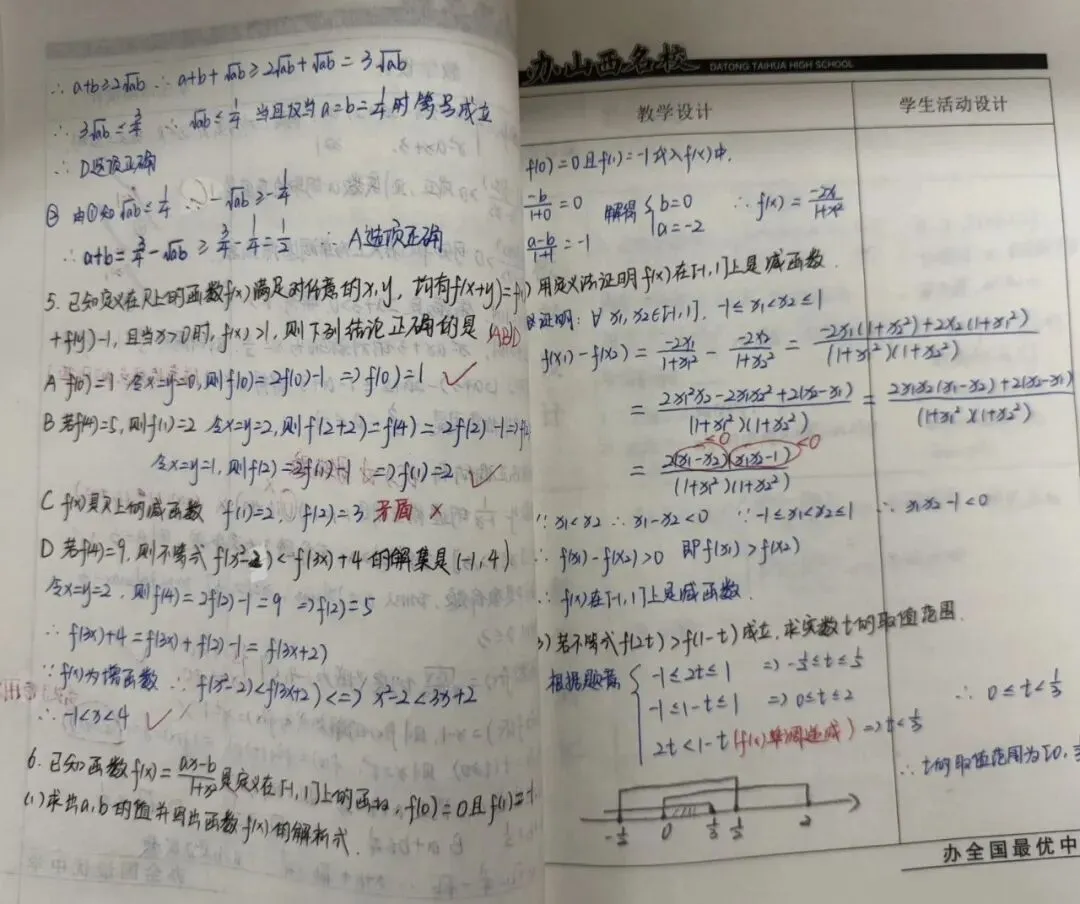 ∴ a+b≥2√ab ∴ a+b+√ab≥2√ab+√ab=3√ab
∴ 3√ab≤3/4 ∴ √ab≤1/4 当且仅当a=b=1/4时等号成立
∴ D选项正确
② 由①知√ab≤1/4 ∴ -√ab≥-1/4
∴ a+b=3/4-√ab≥3/4-1/4=1/2 ∴ A选项正确
5. 已知定义在R上的函数f(x)满足对任意的x,y,均有f(x+y)=f(
+f(y)-1,且当x>0时,f(x)>1,则下列结论正确的是 (ABD
A f(0)=1 令x=y=0,则f(0)=2f(0)-1 => f(0)=1 ✓
B 若f(4)=5,则f(1)=2 令x=y=2,则f(2+2)=f(4)=2f(2)-1=>f(2
令x=y=1,则f(2)=2f(1)-1 => f(1)=2 ✓
C f(x)是R上的减函数 f(1)=2, f(2)=3 矛盾 ×
D 若f(4)=9,则不等式 f(x²-2)<f(3x)+4的解集是(-1,4)
令x=y=2,则f(4)=2f(2)-1=9 => f(2)=5
∴ f(3x)+4=f(3x)+f(2)-1=f(3x+2)
∵ f(x)为增函数 ∴ f(x²-2)<f(3x+2)<=> x²-2<3x+2
∴ -1<x<4 ✓
6. 已知函数f(x)=(ax-b)/(1+x²)是定义在[-1,1]上的函数,f(0)=0且f(1)=-1.
(1)求出a,b的值并写出函数f(x)的解析式.
办山西名校 DATONG TAIHUA HIGH SCHOOL
教学设计 学生活动设计
f(0)=0且f(1)=-1代入f(x)中.
-b/(1+0)=0 解得{b=0 ∴ f(x)=-2x/(1+x²)
(a-b)/(1+1)=-1 a=-2
)用定义法证明f(x)在[-1,1]上是减函数.
证明:∀ x1,x2∈[-1,1], -1≤x1<x2≤1
f(x1)-f(x2)=-2x1/(1+x1²)--2x2/(1+x2²)=(-2x1(1+x2²)+2x2(1+x1²))/((1+x1²)(1+x2²))
=(2x1²x2-2x1x2²+2(x2-x1))/((1+x1²)(1+x2²))=(2x1x2(x1-x2)+2(x2-x1))/((1+x1²)(1+x2²))
<0 <0
=2(x1-x2)(x1x2-1)/((1+x1²)(1+x2²))
∵ x1<x2 ∴ x1-x2<0 ∵ -1≤x1<x2≤1 ∴ x1x2-1<0
∴ f(x1)-f(x2)>0 即f(x1)>f(x2)
∴ f(x)在[-1,1]上是减函数.
3)若不等式f(2t)>f(1-t)成立,求实数t的取值范围.
根据题意{-1≤2t≤1 => -1/2≤t≤1/2
-1≤1-t≤1 => 0≤t≤2 ∴ 0≤t<1/3
2t<1-t(f(x)单调递减) => t<1/3
∴ t的取值范围为[0,
-1/2 0 1/3 1/2 2
办全国最优中